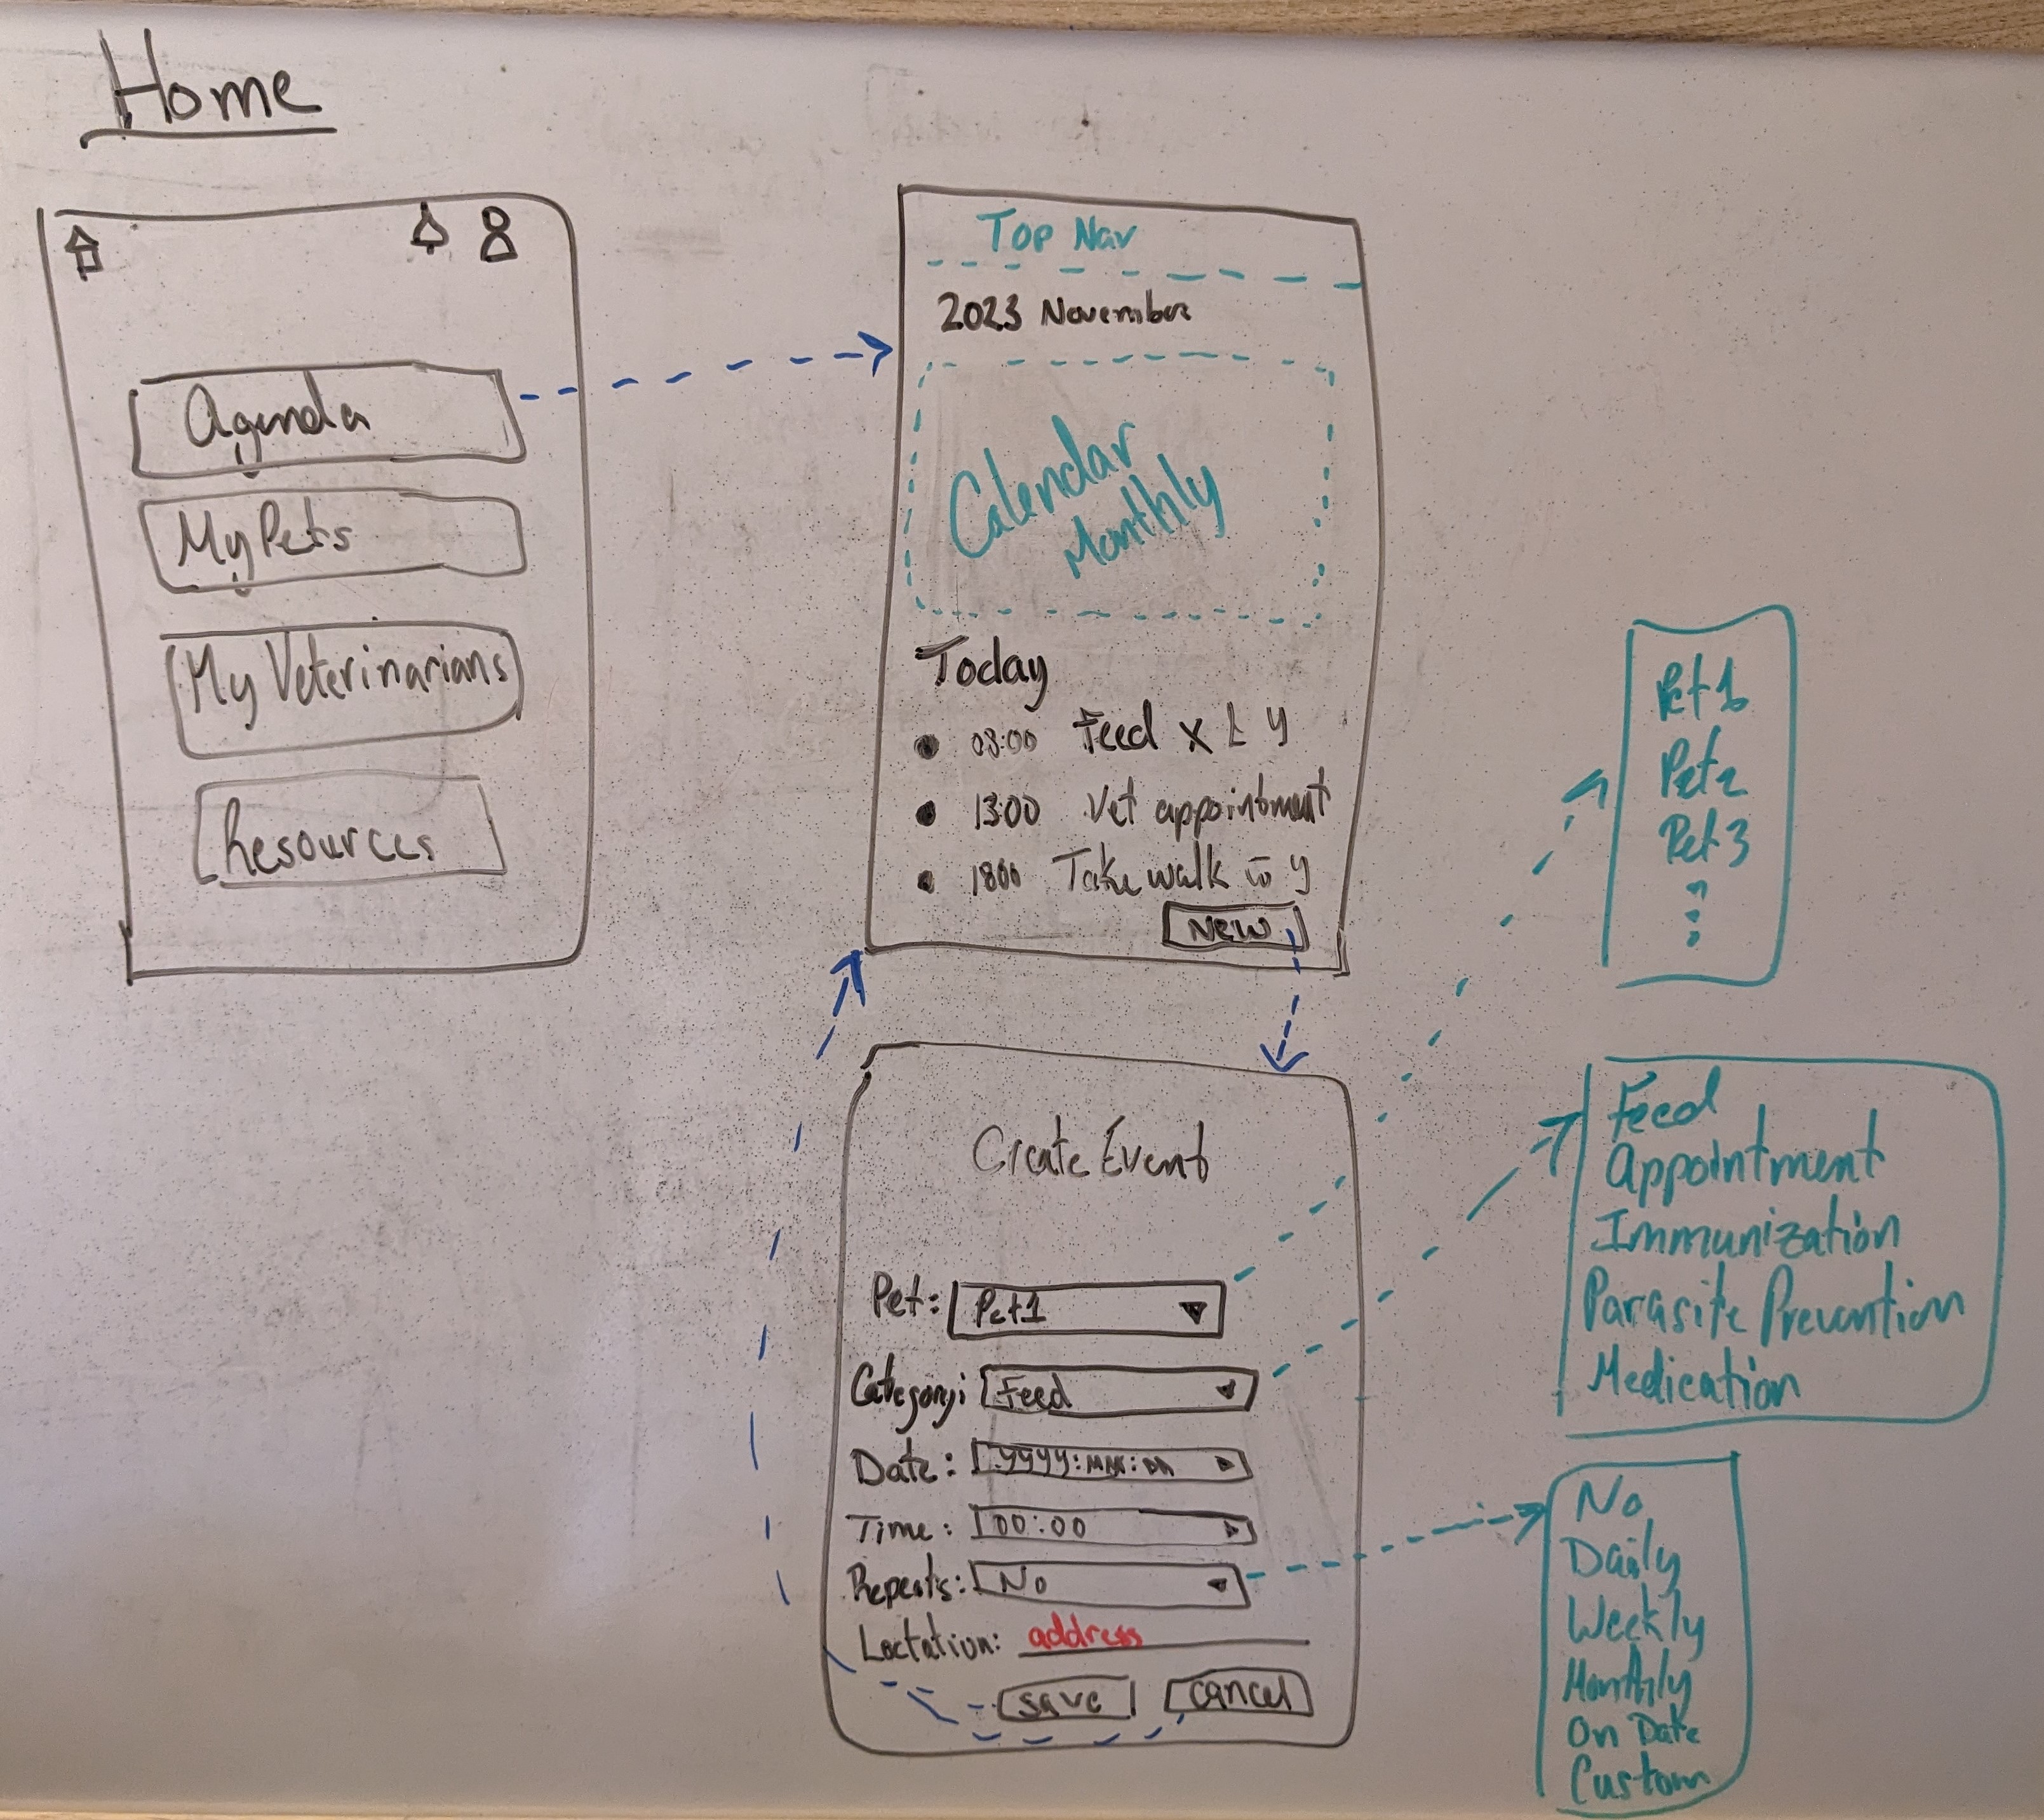 Home
Agenda
My Pets
My Veterinarians
Resources
Top Nav
2023 November
Calendar
Monthly
Today
08:00 Feed X & Y
13:00 Vet appointment
1800 Take walk to Y
New
Create Event
Pet: Pet1
Category: Feed
Date: YYYY:MM:DD
Time: 00:00
Repeats: No
Loctation: address
save cancel
Pet1
Pet2
Pet3
Feed
Appointment
Immunization
Parasite Prevention
Medication
No
Daily
Weekly
Monthly
On Date
Custom